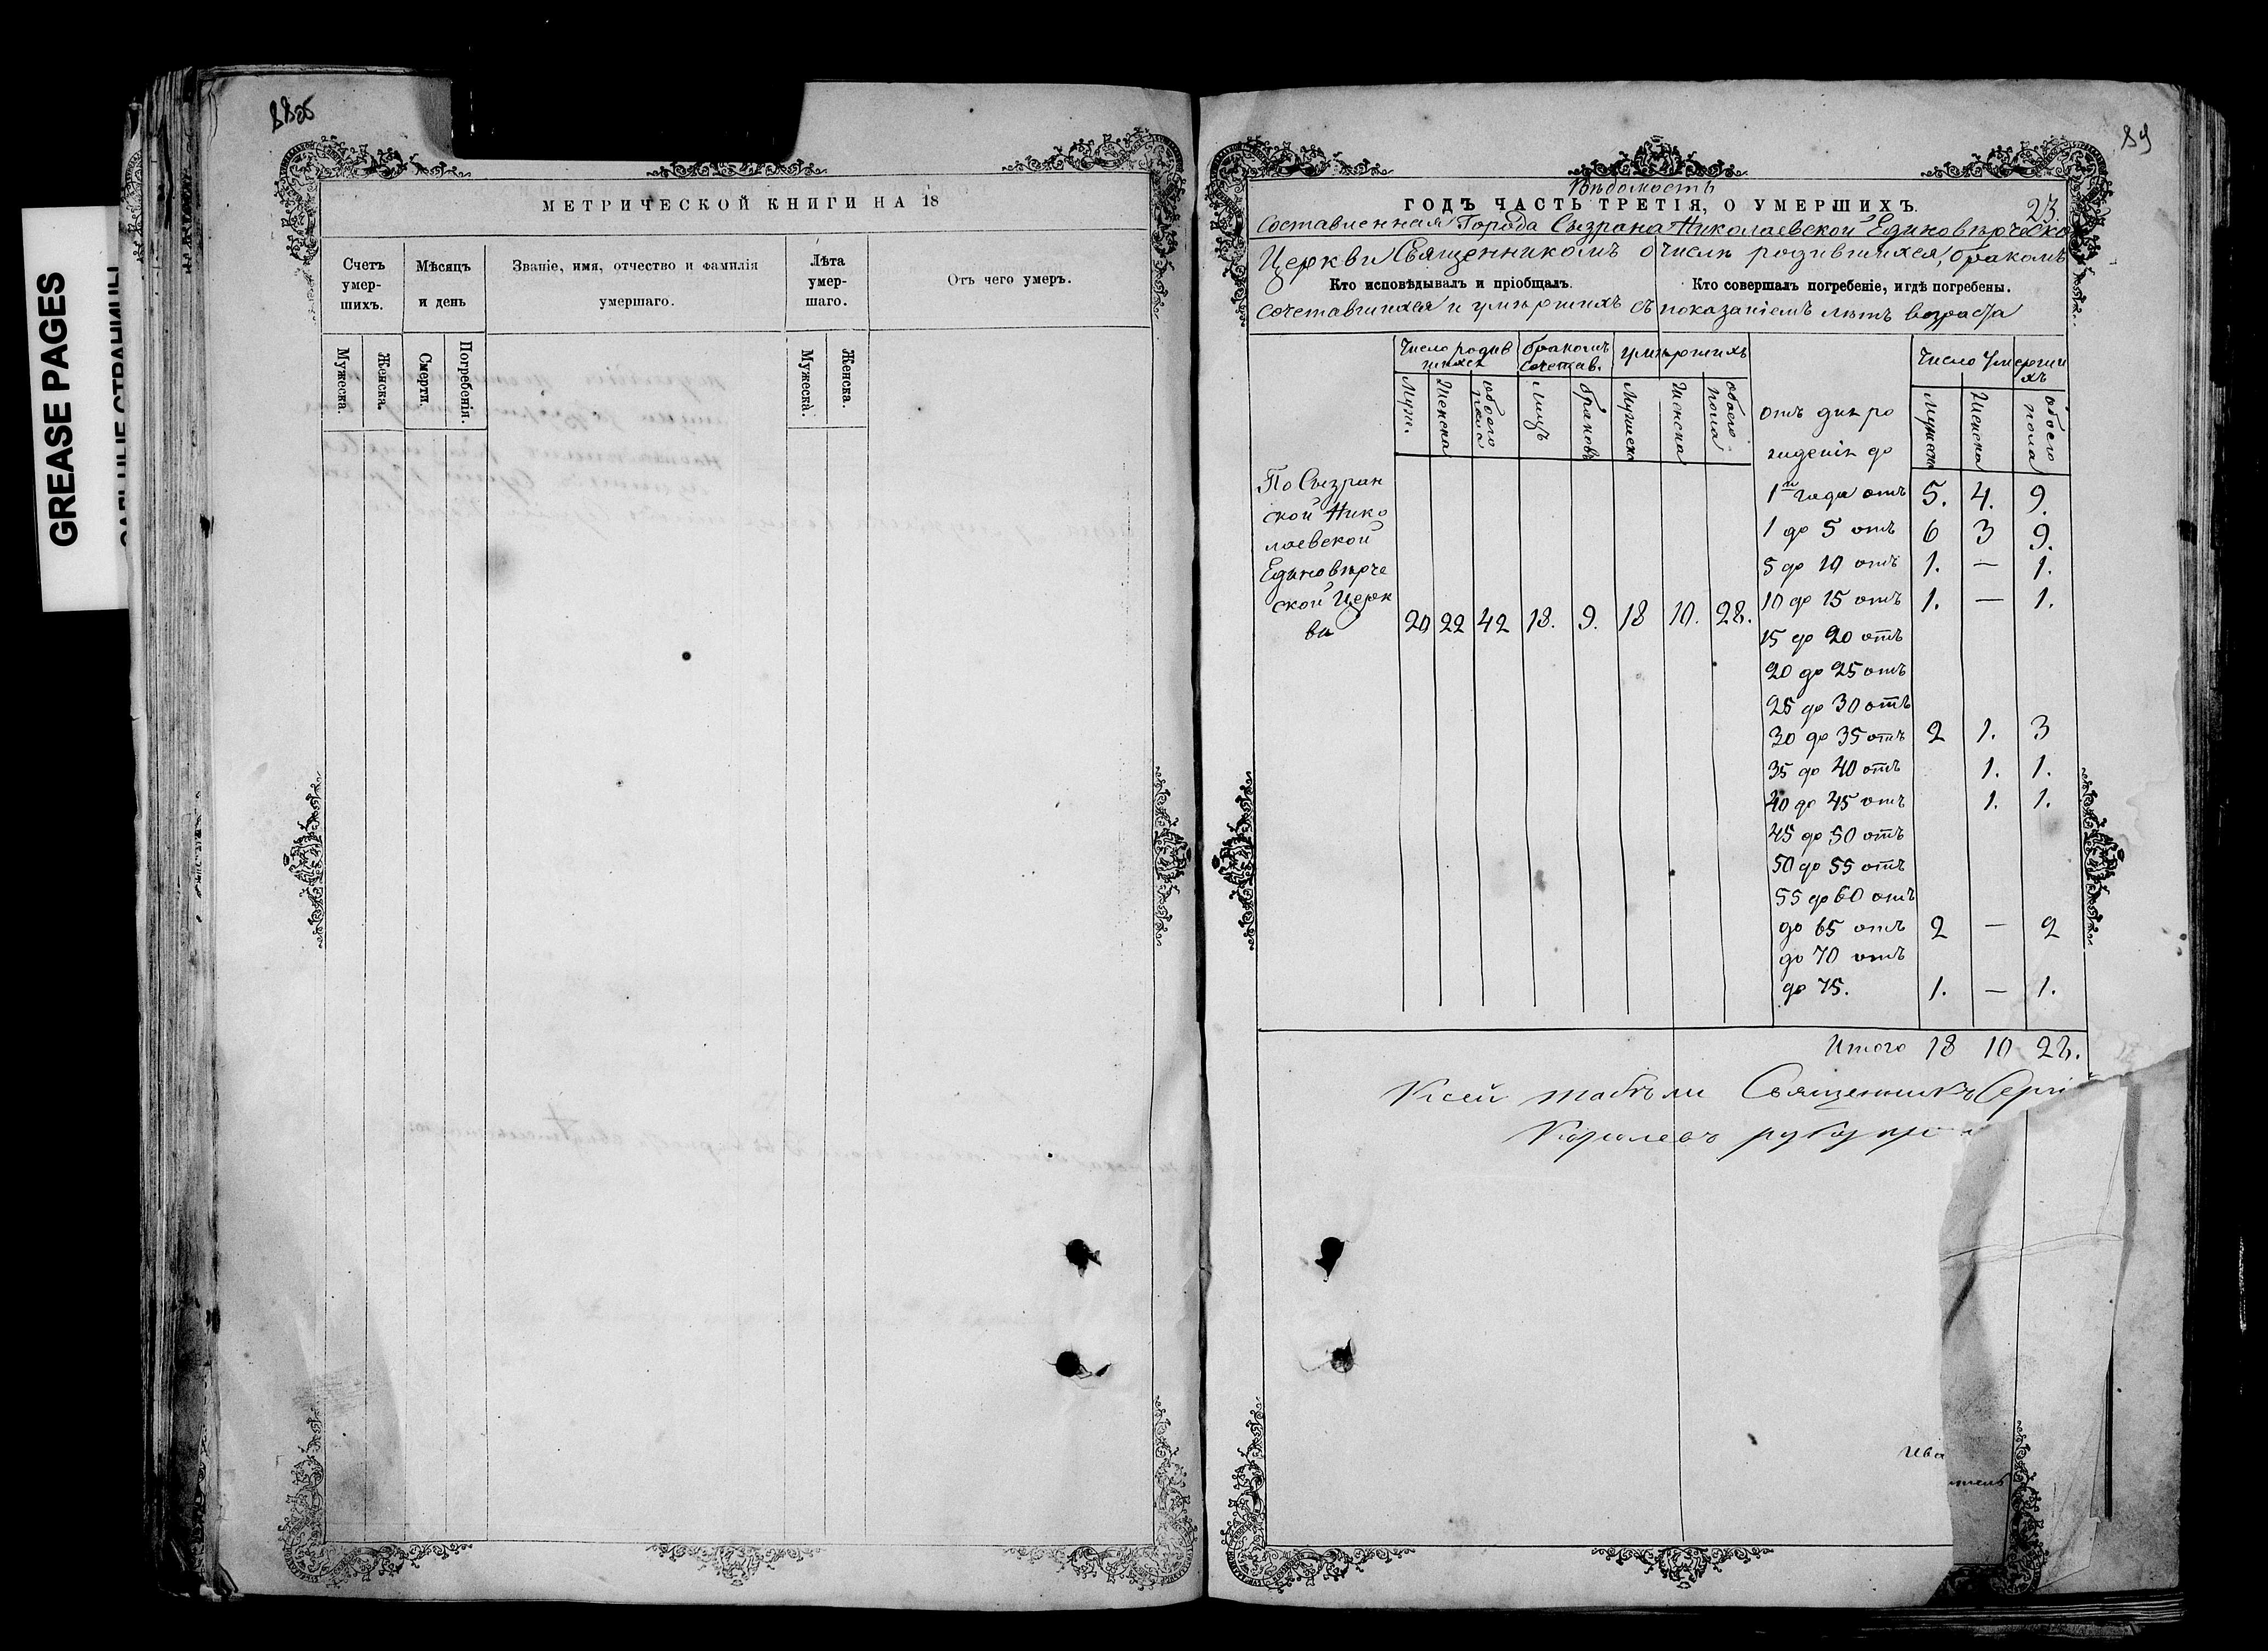 GREASE PAGES
88об
МЕТРИЧЕСКОЙ КНИГИ НА 18
Счетъ умер- шихъ.
Мѣсяцъ и день
Званіе, имя, отчество и фамилія умершаго.
Лѣта умер- шаго.
Отъ чего умеръ.
Мужеска.
Женска.
Смерти.
Погребенія.
Мужеска.
Женска.
89
Вѣдомость
ГОДЪ ЧАСТЬ ТРЕТІЯ, О УМЕРШИХЪ.
23.
Составленная Города Сызрана Николаевской Единовѣрческо
Церкви Священникомъ о числѣ родившихся, бракомъ
Кто исповѣдывалъ и пріобщалъ.
Кто совершалъ погребеніе, и гдѣ погребены.
сочетавшихся и умѣршихъ съ показаніемъ лѣтъ возраста
Число родив шихся
бракомъ сочетав.
умѣршихъ
Число умерши хъ
Муж.
Женска
обоего пола
лицъ
браковъ
Мужеска
Женска
обоего пола
отъ дня ро
жденія до
Мужеска
Женска
обоего пола
По Сызран
ской Нико
лаевской
Единовѣрче
ской Церк
ви
20 22 42 18. 9. 18 10. 28.
1го года отъ 5. 4. 9.
1 до 5 отъ 6 3 9.
5 до 10 отъ 1. — 1.
10 до 15 отъ 1. — 1.
15 до 20 отъ
20 до 25 отъ
25 до 30 отъ
30 до 35 отъ 2 1. 3
35 до 40 отъ 1. 1.
40 до 45 отъ 1. 1.
45 до 50 отъ
50 до 55 отъ
55 до 60 отъ
до 65 отъ 2 — 2
до 70 отъ
до 75. 1. — 1.
Итого 18 10 28.
К сей табѣли Священникъ Сергій
Королевъ руку при
Ива